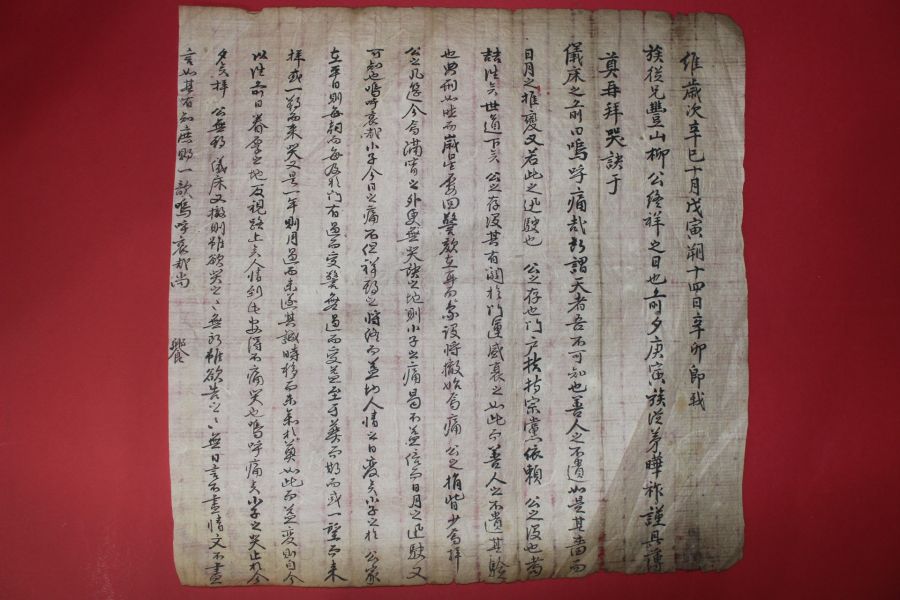 維歲次辛巳十月戊寅朔十四日辛卯卽我
族從兄豐山柳公終祥之日也前夕庚寅族從弟曄祚謹具薄
奠再拜哭訣于
儀床之前曰嗚呼痛哉所謂天者吾不可知也善人之不遺如是其嗇而
日月之推變又若此之迅駛也 公之存也門戶扶持宗黨依賴 公之沒也
誰 世道下 公之存沒其有關於門運盛衰之如此而善人之不遺其驗
也 典刑如昨而歲星 回警欬 再 設將撤 痛 公之捐 少 拜
公之几筵今 滿 之外更無哭訣之地則小子之痛曷不益倍而日月之迅駛又
可 也嗚呼哀哉小子今日之痛不但祥 之將終而益切人情之日變矣小子之於 公家
在平日則每朝而每夕於門有過而受警無過而受益至于 而 而或一 而來
拜或一 而來哭又是一年則月過而未遂其 時移而未 於 如此而益變則自今
以往前日眷 之地反視路上之人情到此安得不痛哭也嗚呼痛矣小子之哭止於今
夕矣拜 公無 儀床又撤則雖欲哭之無所雖欲告之無日言不盡情文不盡
言如其有知庶賜一歆嗚呼哀哉尙
饗